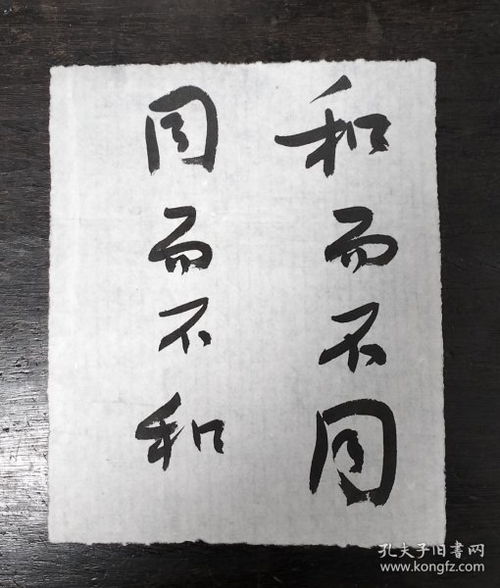 和而不同
同而不和
孔夫子旧书网
www.kongfz.com